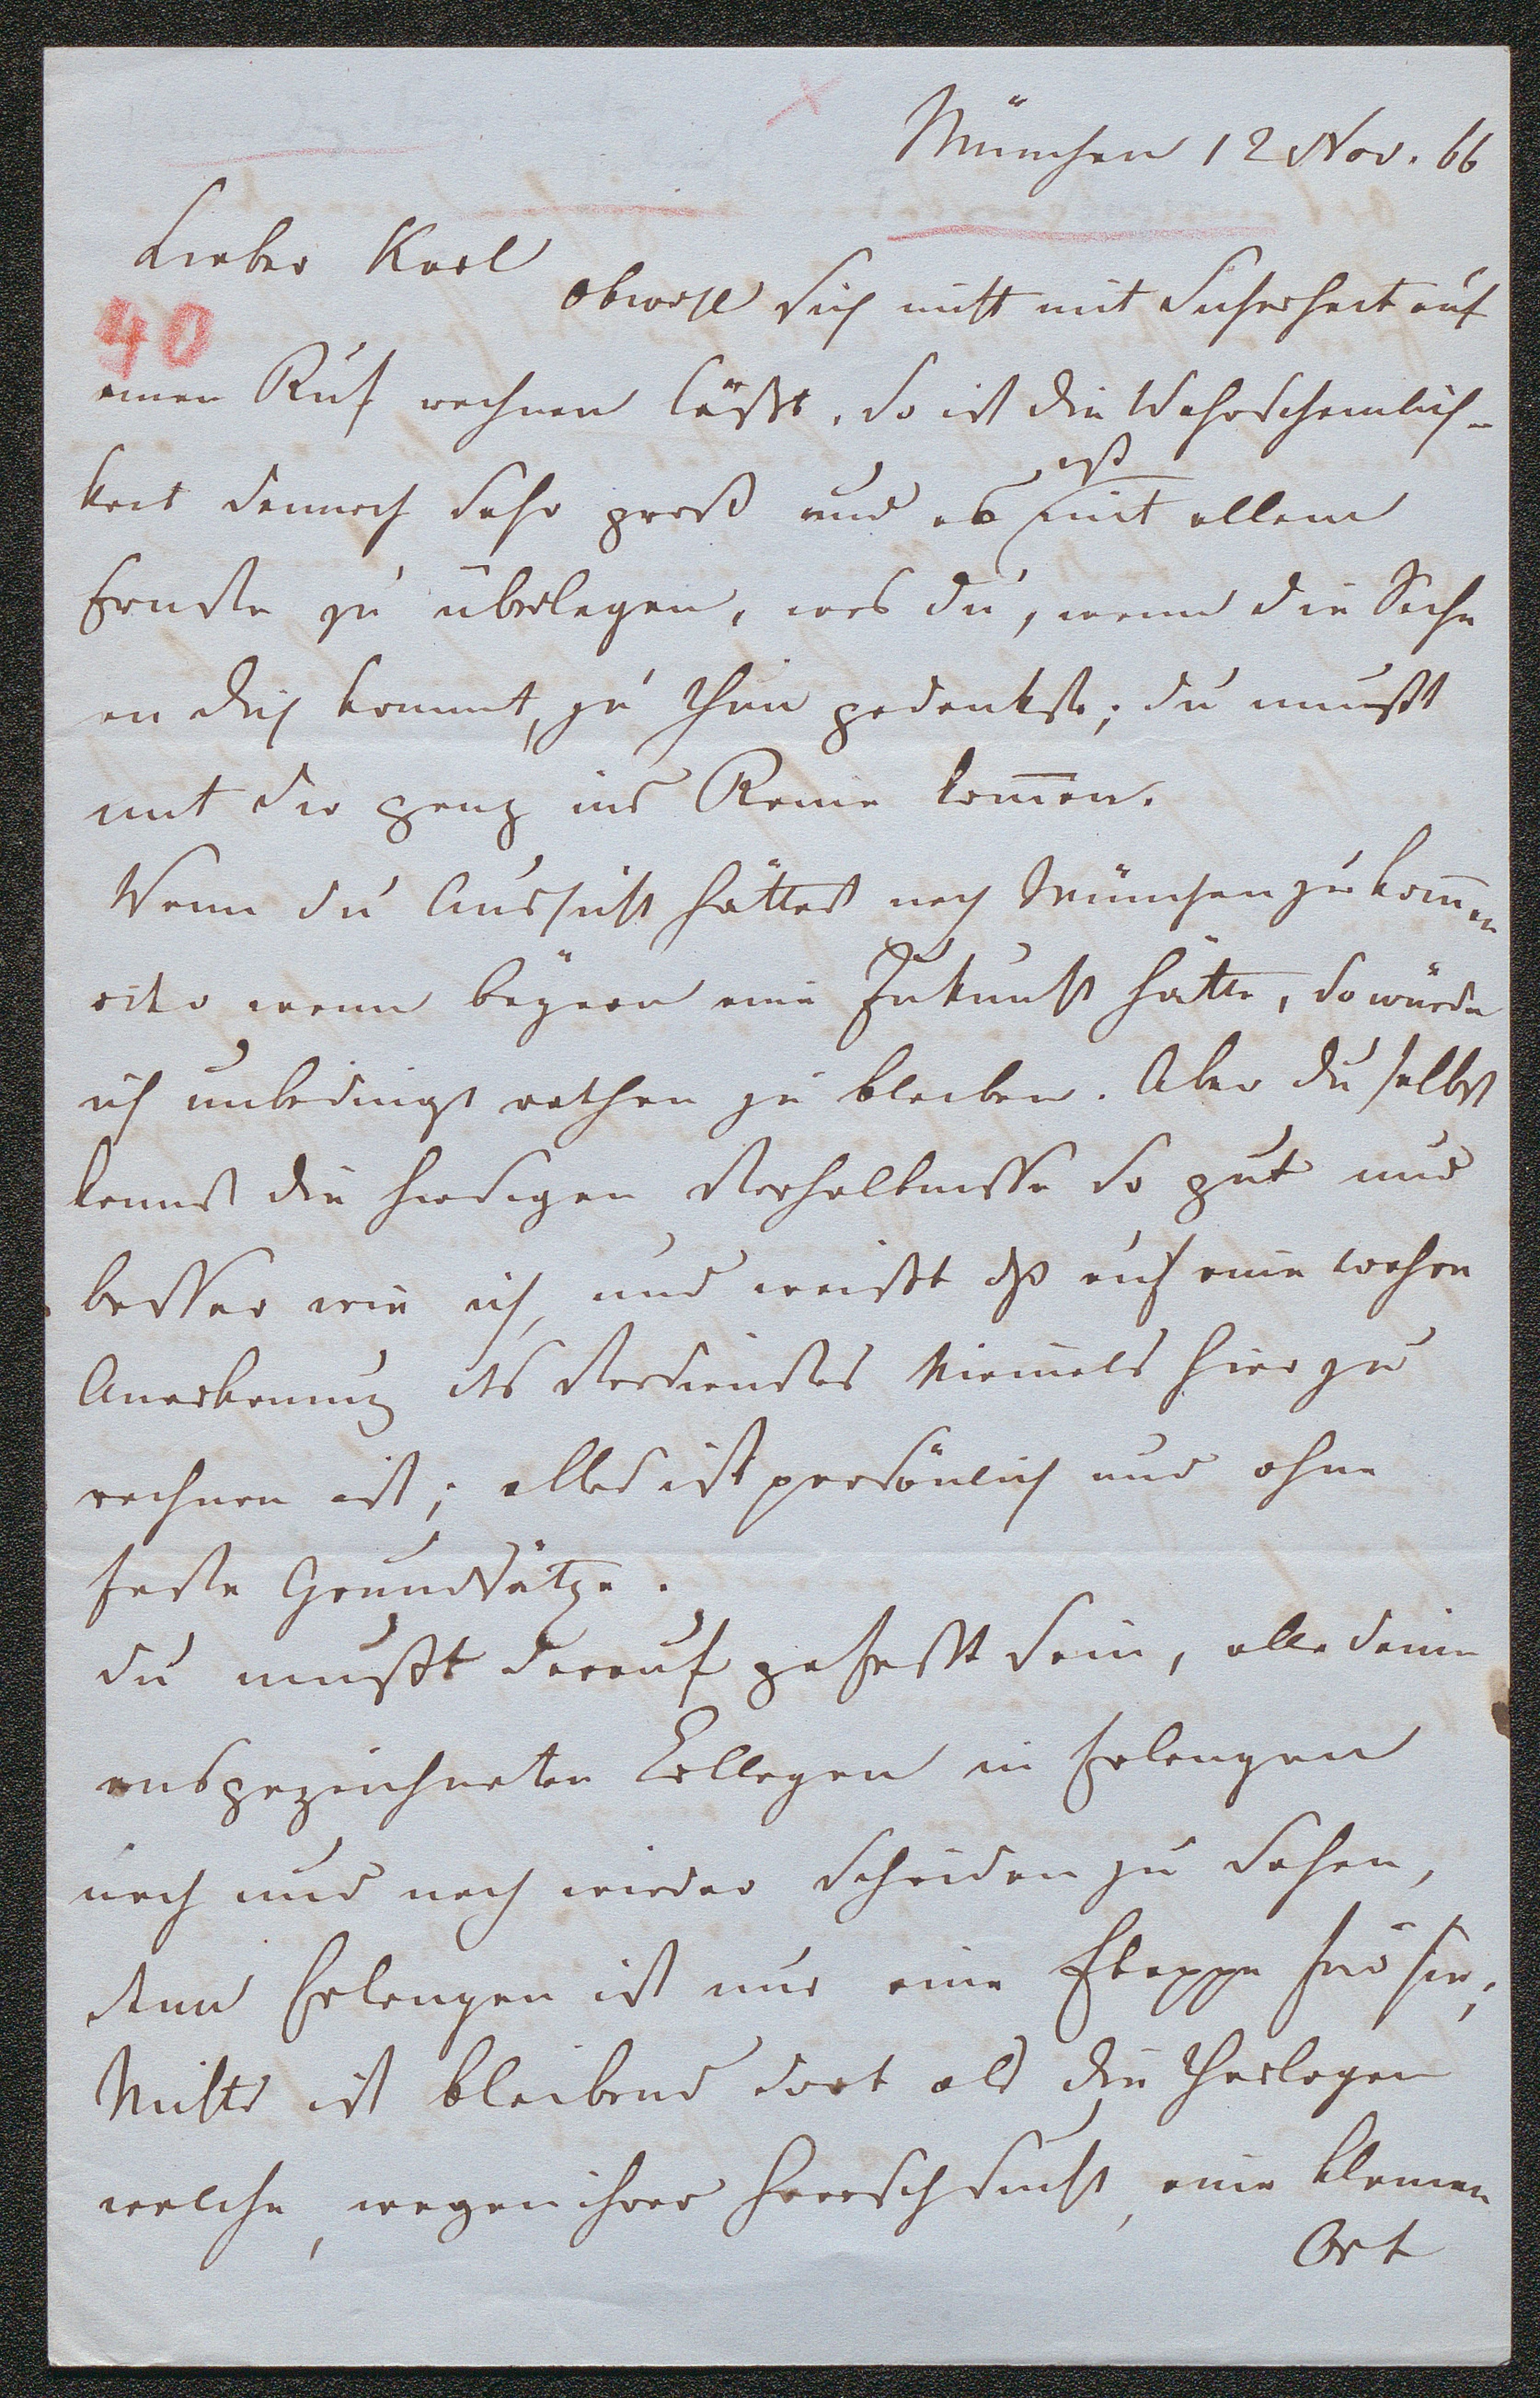 München 12 Nov. 66
Lieber Karl
obwohl sich nicht mit Sicherheit auf
40
einen Ruf rechnen läßt, so ist die Wahrscheinlich-
ist
keit dennoch sehr groß und es mit allem
Ernste zu überlegen, was du, wenn die Sache
an dich kommt, zu thun gedenkst; du mußt
mit dir ganz ins Reine kom̄en.
Wenn du Aussicht hättest nach München zu kom̄en
oder wenn Bayern eine Zukunft hätte, so würde
ich unbedingt rathen zu bleiben. Aber du selbst
kennst die hiesigen Verhältnisse so gut und
besser wie ich, und weißt dß auf eine wahre
Anerkennung des Verdienstes Niemals hier zu
rechnen ist; alles ist persönlich und ohne
feste Grundsätze.
du mußt darauf gefaßt sein, alle deine
ausgezeichneten Collegen in Erlangen
nach und nach wieder scheiden zu sehen,
denn Erlangen ist nur eine Etappe für sie;
Nichts ist bleibend dort als die Theologen
welche, wegen ihrer Herrschsucht, eine kleinen
Ort